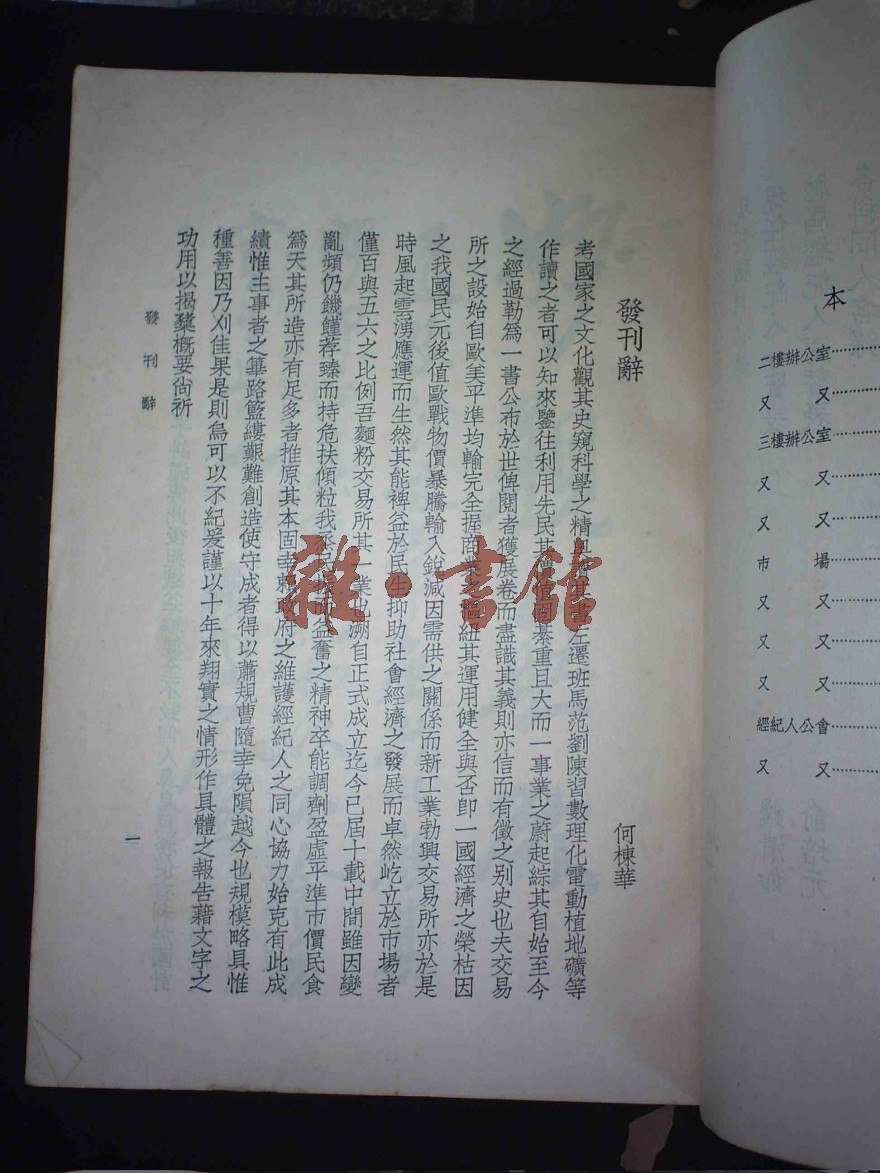 本
二樓辦公室
又 又
三樓辦公室
又 又
又 又
市 場
又 又
又 又
又 又
經紀人公會
又 又
發刊辭
何棟華
考國家之文化觀其史窺科學之精 其書左遷班馬范劉陳習數理化電動植地礦等
作讀之者可以知來鑒往利用先民其價值固綦重且大而一事業之蔚起綜其自始至今
之經過勒爲一書公布於世俾閱者獲展卷而盡識其義則亦信而有徵之别史也夫交易
所之設始自歐美平準均輸完全握商業之樞紐其運用健全與否卽一國經濟之榮枯因
之我國民元後值歐戰物價暴騰輸入銳減因需供之關係而新工業勃興交易所亦於是
時風起雲湧應運而生然其能裨益於民生抑助社會經濟之發展而卓然屹立於市場者
僅百與五六之比例吾麵粉交易所其一業也溯自正式成立迄今已屆十載中間雖因變
亂頻仍饑饉荐臻而持危扶傾粒我烝民 益奮之精神卒能調劑盈虛平準市價民食
爲天其所造亦有足多者推原其本固幸賴政府之維護經紀人之同心協力始克有此成
績惟主事者之篳路籃縷艱難創造使守成者得以蕭規曹隨幸免隕越今也規模略具惟
種善因乃刈佳果是則烏可以不紀爰謹以十年來翔實之情形作具體之報告藉文字之
功用以揭櫫概要尙祈
發刊辭
一
雜·書館